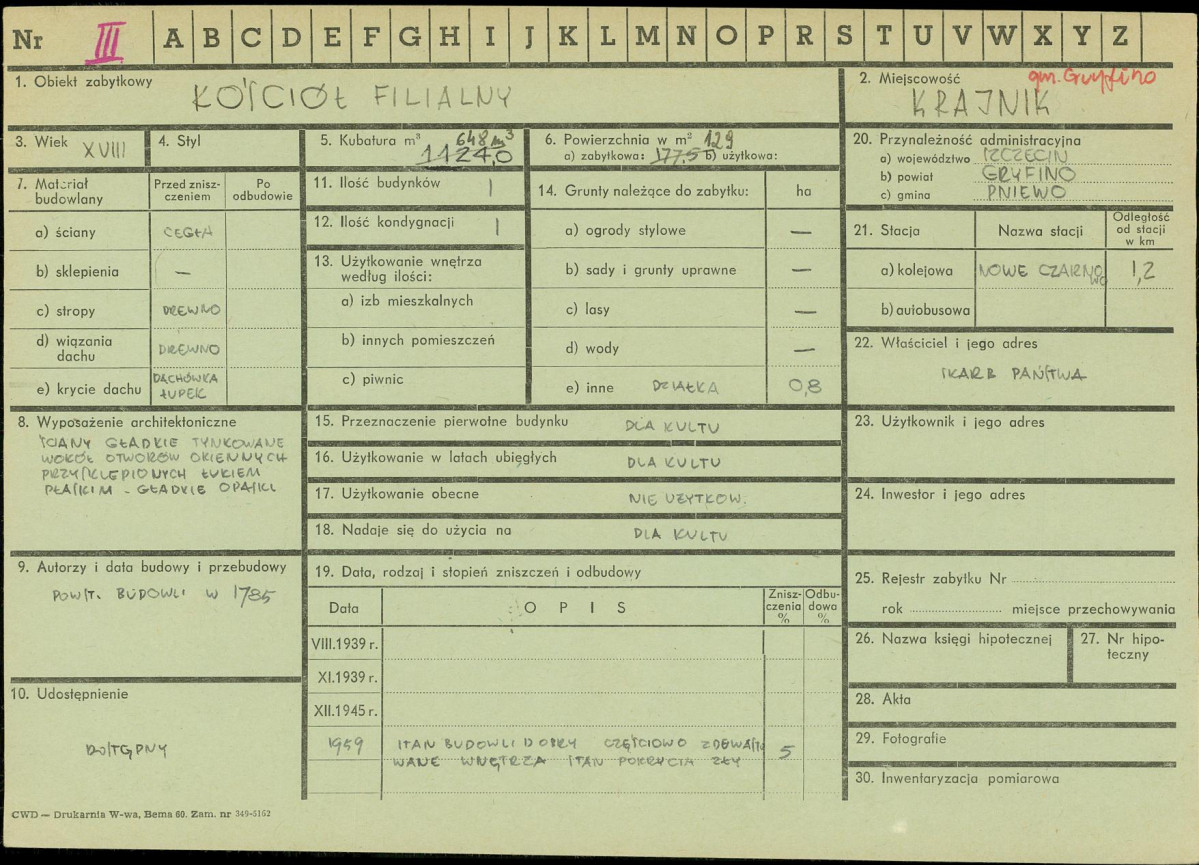 Nr III A B C D E F G H I J K L M N O P R S T U V W X Y Z
1. Obiekt zabytkowy
KOŚCIÓŁ FILIALNY
2. Miejscowość
gm. Gryfino
KRAJNIK
3. Wiek XVIII
4. Styl
5. Kubatura m³ 648 m³
1124,0
6. Powierzchnia w m² 129
a) zabytkowa: 177,5 b) użytkowa:
20. Przynależność administracyjna
a) województwo SZCZECIN
b) powiat GRYFINO
c) gmina PNIEWO
7. Materiał budowlany
Przed zniszczeniem
Po odbudowie
a) ściany CEGŁA
b) sklepienia —
c) stropy DREWNO
d) wiązania dachu DREWNO
e) krycie dachu DACHÓWKA ŁUPEK
11. Ilość budynków 1
12. Ilość kondygnacji 1
13. Użytkowanie wnętrza według ilości:
a) izb mieszkalnych
b) innych pomieszczeń
c) piwnic
14. Grunty należące do zabytku: ha
a) ogrody stylowe —
b) sady i grunty uprawne —
c) lasy —
d) wody —
e) inne DZIAŁKA 0,8
21. Stacja
Nazwa stacji
Odległość od stacji w km
a) kolejowa NOWE CZARNOWO 1,2
b) autobusowa
22. Właściciel i jego adres
SKARB PAŃSTWA
8. Wyposażenie architektoniczne
ŚCIANY GŁADKIE TYNKOWANE
WOKÓŁ OTWORÓW OKIENNYCH
PRZYSKLEPIONYCH ŁUKIEM
PŁASKIM - GŁADKIE OPASKI
15. Przeznaczenie pierwotne budynku DLA KULTU
16. Użytkowanie w latach ubiegłych DLA KULTU
17. Użytkowanie obecne NIE UŻYTKOW.
18. Nadaje się do użycia na DLA KULTU
23. Użytkownik i jego adres
24. Inwestor i jego adres
9. Autorzy i data budowy i przebudowy
POWST. BUDOWLI W 1785
19. Data, rodzaj i stopień zniszczeń i odbudowy
Data
OPIS
Zniszczenia %
Odbudowa %
VIII.1939 r.
XI.1939 r.
XII.1945 r.
1959 STAN BUDOWLI DOBRY CZĘŚCIOWO ZDEWASTO
WANE WNĘTRZA STAN POKRYCIA ZŁY 5
25. Rejestr zabytku Nr
rok miejsce przechowywania
26. Nazwa księgi hipotecznej
27. Nr hipoteczny
10. Udostępnienie
DOSTĘPNY
28. Akta
29. Fotografie
30. Inwentaryzacja pomiarowa
CWD — Drukarnia W-wa, Bema 60. Zam. nr 349-5162